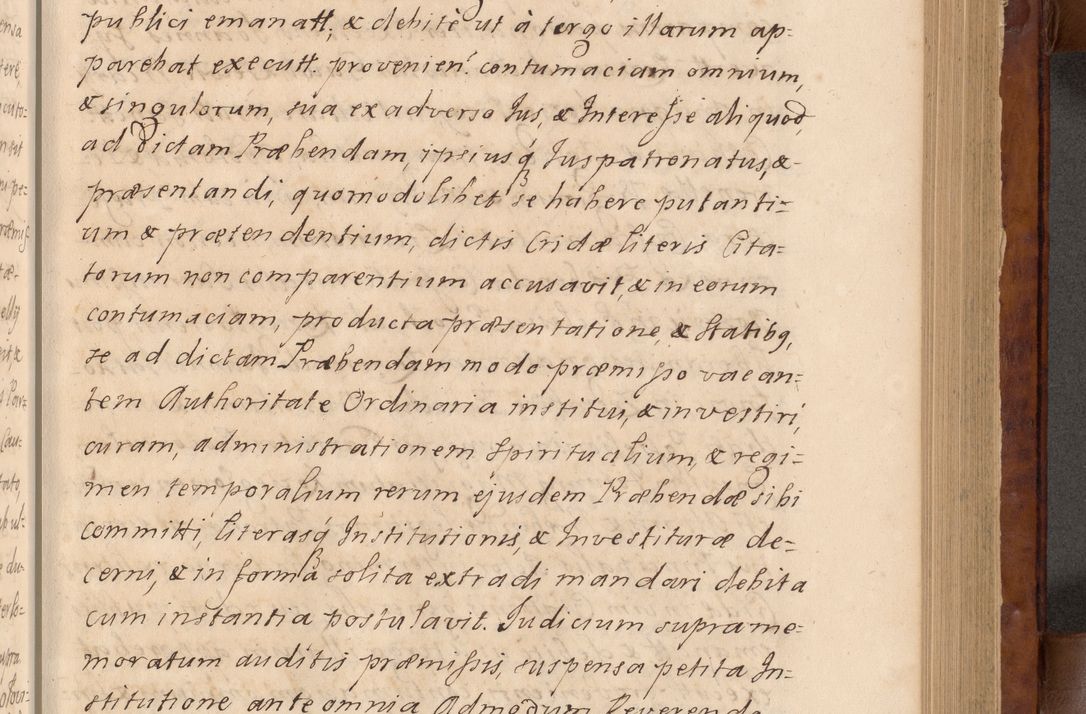 publici emanatt; & debitè ut à tergo illarum ap=
parebat executt. provenien. contumaciam omnium,
& singulorum, sua ex adverso Jus, & Interesse aliquod,
ad dictam Præbendam, ipsiusq́ Juspatronatus, &
præsentandi, quomodolibet se habere putanti=
um & prætendentium, dictis Cridæ literis Cita=
torum non comparentium accusavit, & in eorum
contumaciam, producta præsentatione, & Statibq,
se ad dictam Præbendam modo præmisso vacan=
tem Authoritate Ordinaria institui, & investiri,
curam, administrationem Spiritualium, & regi=
men temporalium rerum ejusdem Præbendæ sibi
committi, literasq́ Institutionis, & Investituræ de=
cerni, & in forma solita extradi mandari debita
cum instantia postulavit. Judicium suprame=
moratum auditis præmissis, suspensa petita In=
stitutione ante omnia Admodum Reverendo